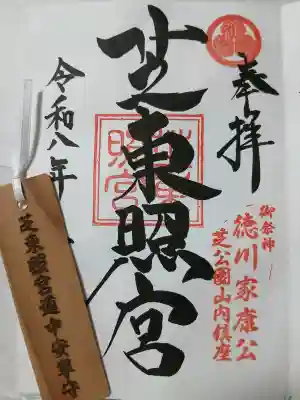 奉拝
御祭神
徳川家康公
芝公園山内鎮座
芝東照宮
令和八年
芝東照宮道中安全守